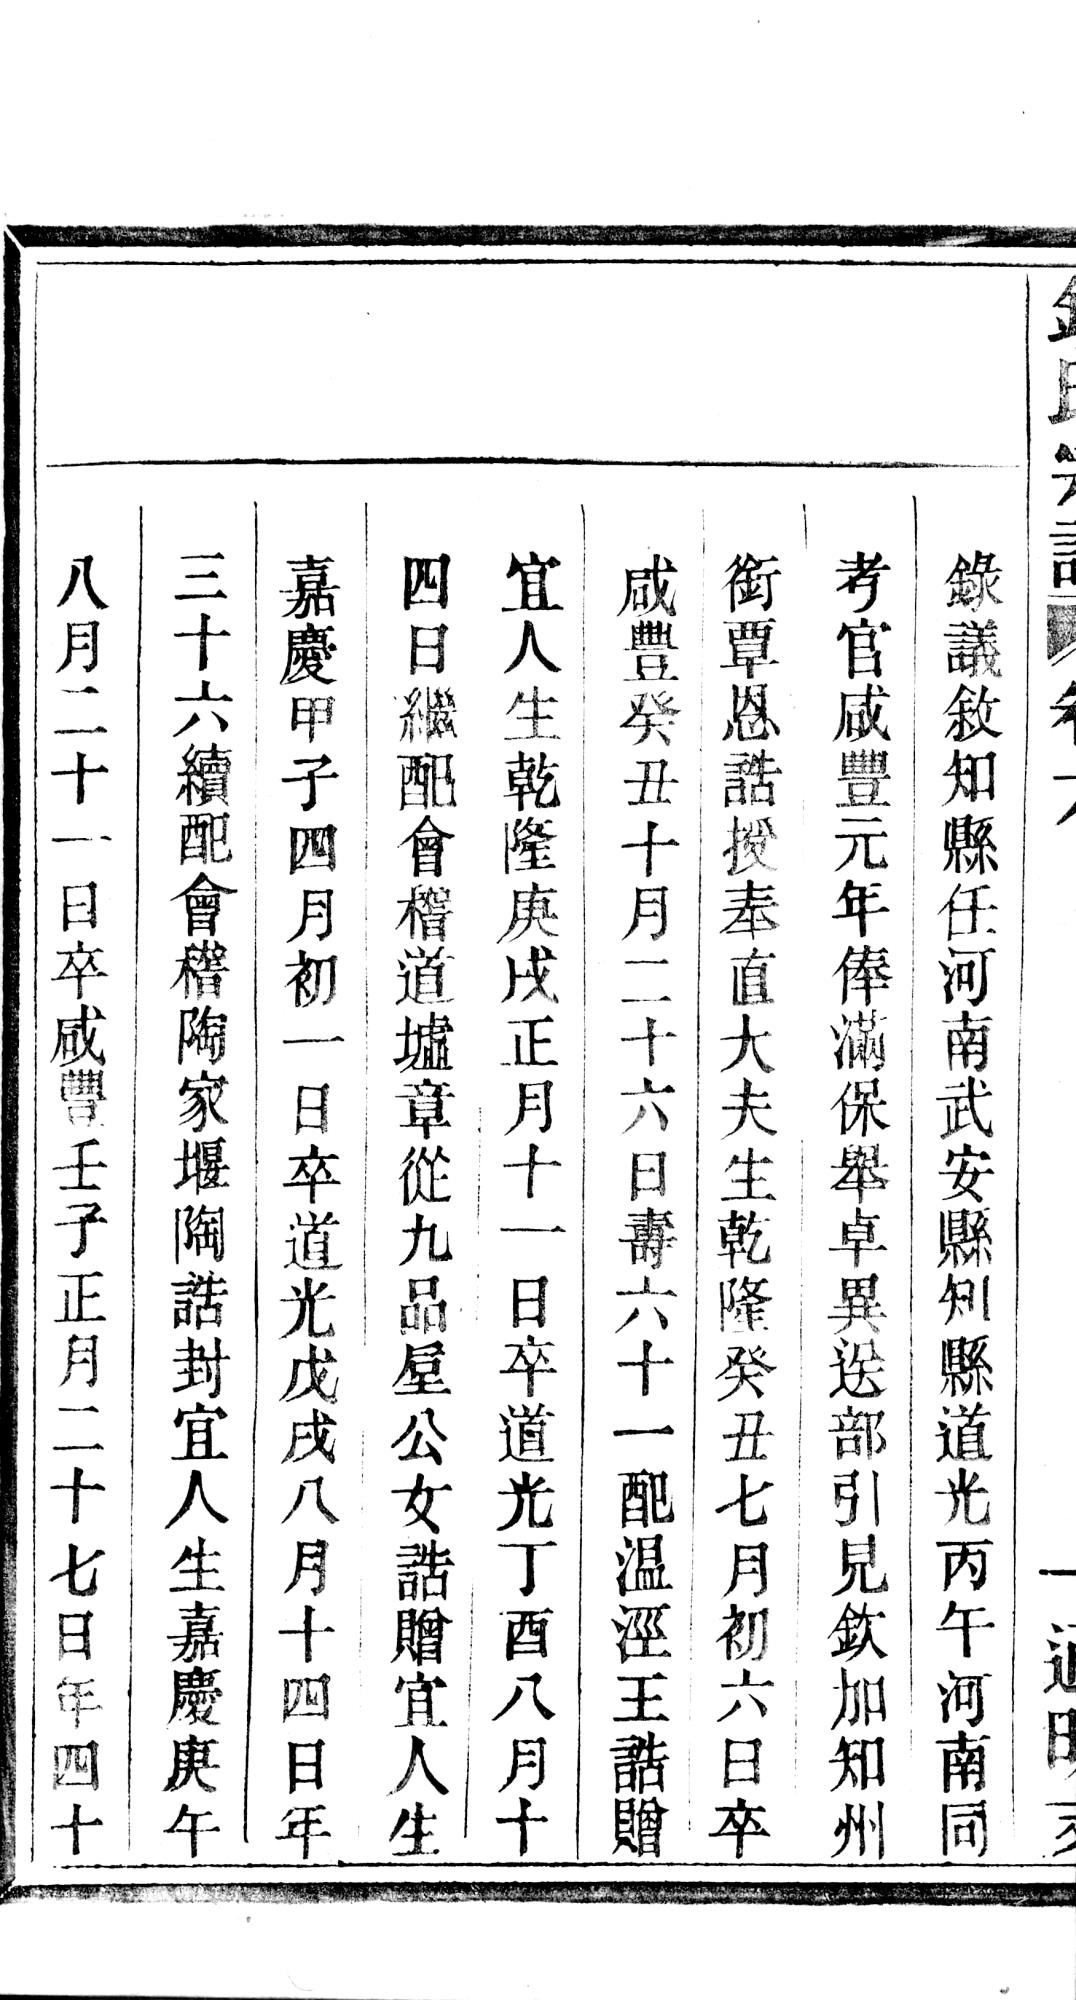 氏宗譜 卷六
錄議敘知縣任河南武安縣知縣道光丙午河南同
考官咸豐元年俸滿保舉卓異送部引見欽加知州
銜覃恩誥授奉直大夫生乾隆癸丑七月初六日卒
咸豐癸丑十月二十六日壽六十一配温涇王誥贈
宜人生乾隆庚戌正月十一日卒道光丁酉八月十
四日繼配會稽道墟章從九品屋公女誥贈宜人生
嘉慶甲子四月初一日卒道光戊戌八月十四日年
三十六續配會稽陶家堰陶誥封宜人生嘉慶庚午
八月二十一日卒咸豐壬子正月二十七日年四十